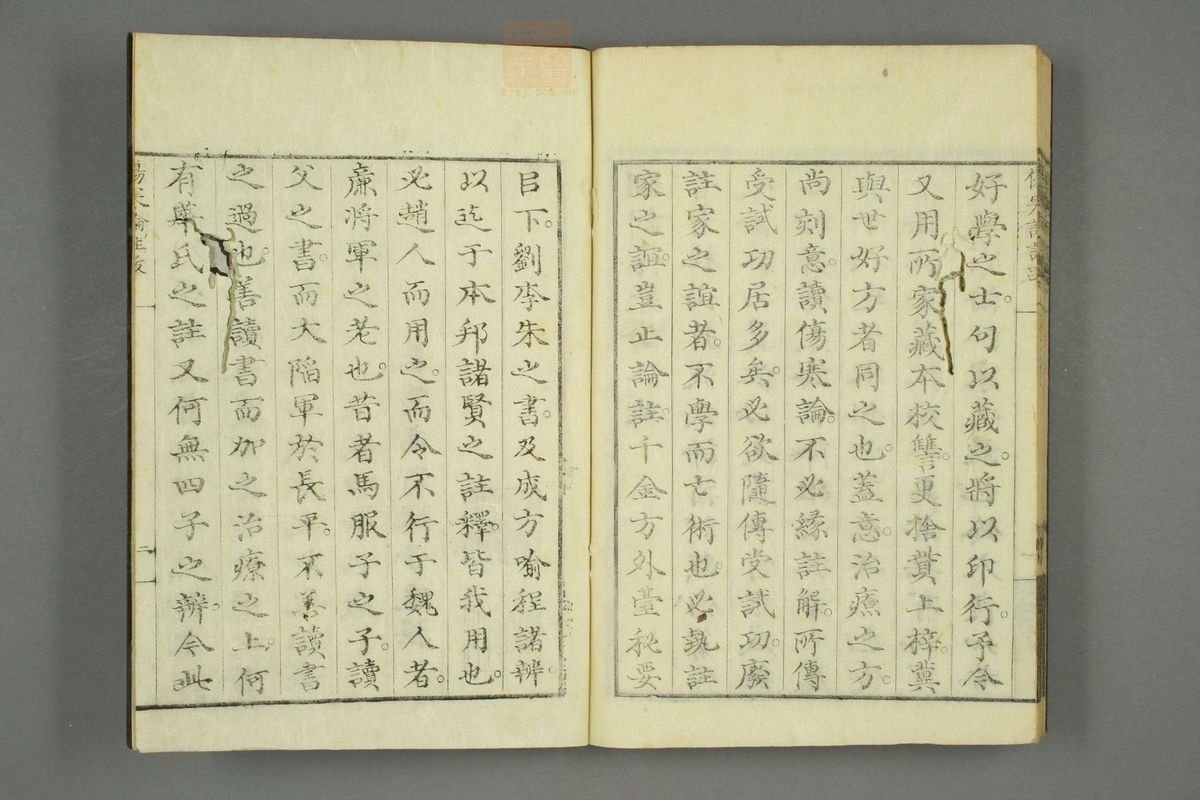 好學之士。句以藏之。將以印行。予令
又用所家藏本校讐。更捨貲上梓。冀
與世好方者同之也。蓋意。治療之方。
尚刻意。讀傷寒論。不必緣註解。所傳
受試功居多矣。必欲隨傳受試功。廢
註家之誼者。不學而亡術也。必執註
家之誼。豈止論註。千金方外臺秘要
以下。劉李朱之書。及成方喻程諸辨。
以迄于本邦諸賢之註釋。皆我用也。
必趙人而用之。而令不行于魏人者。
廉將軍之老也。昔者馬服子之子。讀
父之書。而大陷軍於長平。不善讀書
之過也。善讀書而加之治療之上。何
有 氏之註又何無四子之辨。今此